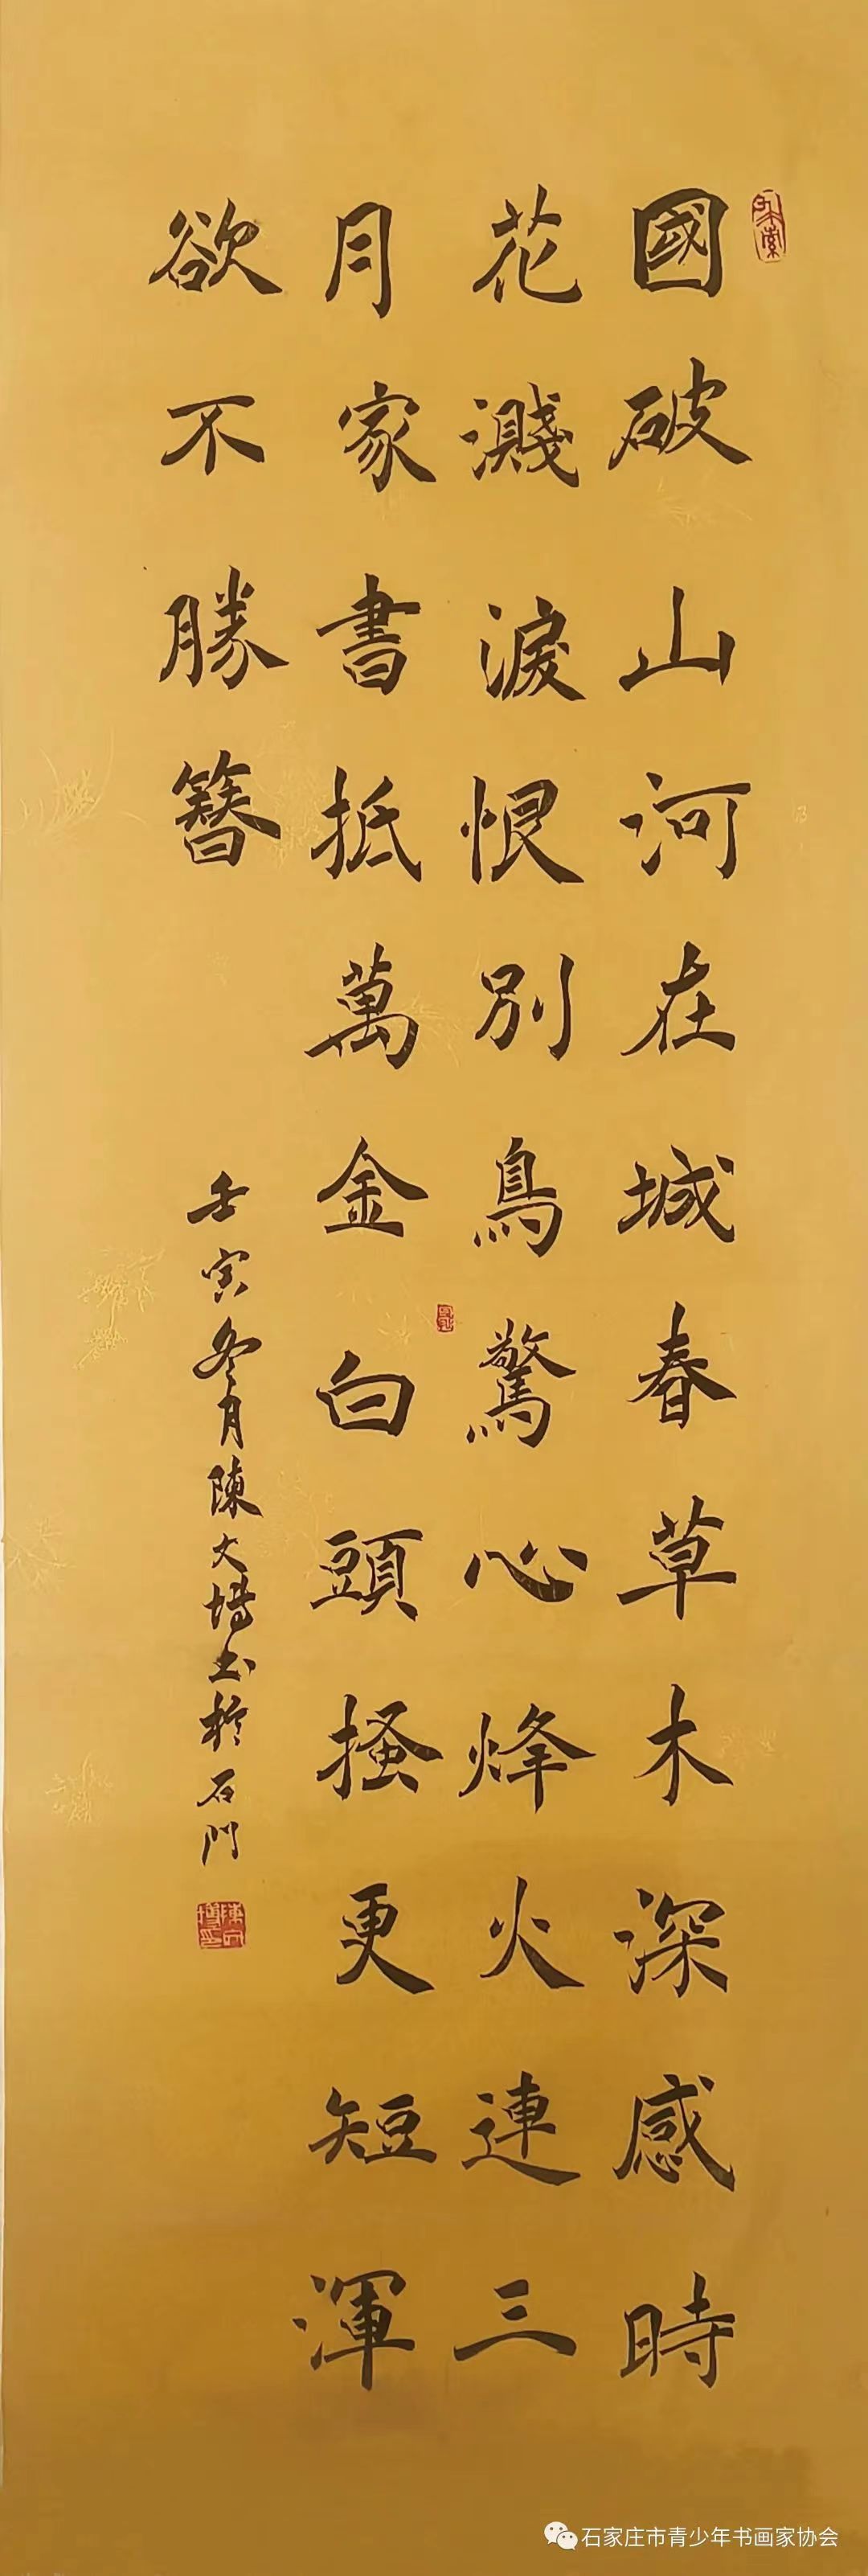 國破山河在城春草木深感時
花濺淚恨別鳥驚心烽火連三
月家書抵萬金白頭搔更短渾
欲不勝簪
壬寅冬月陳大增书於石門
石家庄市青少年书画家协会